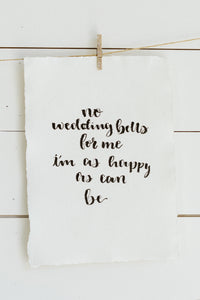 no
wedding bells
for me
i'm as happy
as can
be